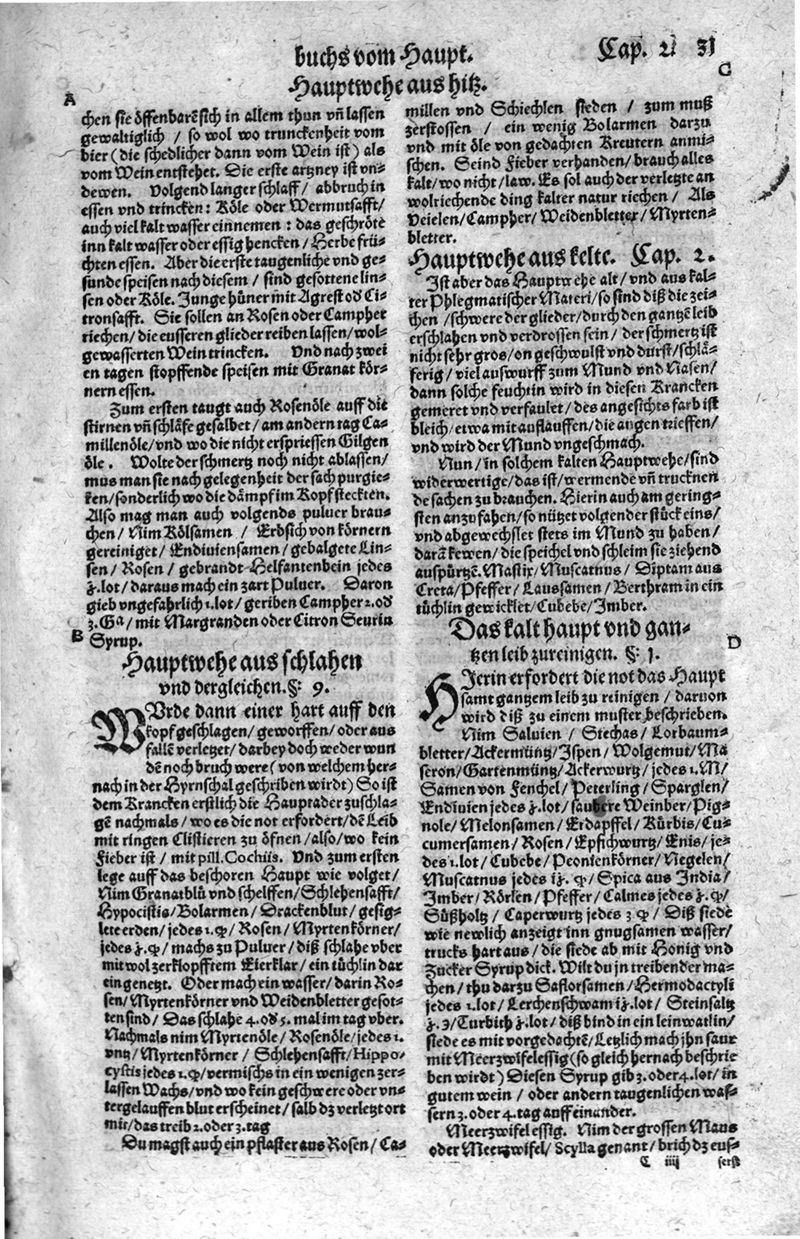 buchs vom Haupt.
Cap. 2. 31
Hauptwehe aus hitz.
A
chen sie öffenbarẽ sich in allem thun vñ lassen
gewaltiglich / so wol wo trunckenheit vom
bier (die schedlicher dann vom Wein ist) als
vom Wein entstehet. Die erste artzney ist vn⸗
dewen. Volgend langer schlaff / abbruch in
essen vnd trincken: Köle oder Wermutsafft /
auch viel kalt wasser einnemen: das geschröte
inn kalt wasser oder essig hencken / Herbe frü⸗
chten essen. Aber die erste taugenliche vnd ge⸗
sunde speisen nach diesem / sind gesottene lin⸗
sen oder Köle. Junge hüner mit Agrest oď Ci⸗
tronsafft. Sie sollen an Rosen oder Campher
riechen / die eusseren glieder reiben lassen / wol⸗
gewasserten Wein trincken. Vnd nach zwei
en tagen stopffende speisen mit Granat kör⸗
nern essen.
Zum ersten taugt auch Rosenöle auff die
stirnen vñ schläfe gesalbet / am andern tag Ca⸗
millenöle / vnd wo die nicht erspriessen Gilgen
öle. Wolte der schmertz noch nicht ablassen /
mus man sie nach gelegenheit der sach purgie⸗
ren / sonderlich wo die dämpf im Kopf steckten.
Also mag man auch volgends puluer brau⸗
chen / Nim Kölsamen / Erbsich von körnern
gereiniget / Endiuiensamen / gebalgete Lin⸗
sen / Rosen / gebrandt Helfantenbein jedes
ʒ. lot / daraus mach ein zart Puluer. Daron
gieb vngefahrlich 1. lot / geriben Campher 2. oď
3. Gᵃ / mit Margranden oder Citron Seurin
B
Syrup.
Hauptwehe aus schlahen
vnd dergleichen. §: 9.
WVrde dann einer hart auff den
kopf geschlagen / geworffen / oder aus
fallẽ verletzet / darbey doch weder wun
dẽ noch bruch were (von welchem her⸗
nach in der Hyrnschal geschriben wirdt) So ist
dem Krancken erstlich die Hauptader zuschla⸗
gẽ nachmals / wo es die not erfordert / dẽ Leib
mit ringen Clistieren zu öfnen / also / wo kein
Fieber ist / mit pill. Cochiis. Vnd zum ersten
lege auff das beschoren Haupt wie volget /
Nim Granatblů vnd schelffen / Schlehensafft /
Hypocistis / Bolarmen / Drackenblut / gesig⸗
lete erden / jedes 1. q̃ / Rosen / Myrtenkörner /
jedes ʒ. q̃ / machs zu Puluer / diß schlahe vber
mit wol zerklopfftem Eierklar / ein tüchlin dar
ein genetzt. Oder mach ein wasser / darin Ro⸗
sen / Myrtenkörner vnd Weidenbletter gesot⸗
ten sind / Das schlahe 4. oď 5. mal im tag vber.
Nachmals nim Myrtenöle / Rosenöle / jedes 1.
vntz / Myrtenkörner / Schlehensafft / Hippo⸗
cystis jedes 1. q̃ / vermischs in ein wenigen zer⸗
lassen Wachs / vnd wo kein geschwere oder vn⸗
tergelauffen blut erscheinet / salb dz verletzt ort
mit / das treib 2. oder 3. tag
Du magst auch ein pflaster aus Rosen / Ca⸗
C
millen vnd Schiechlen sieden / zum muß
zerstossen / ein wenig Bolarmen darzu
vnd mit öle von gedachten Kreutern anmi⸗
schen. Seind Fieber verhanden / brauch alles
kalt / wo nicht / law. Es sol auch der verletzte an
wolriechende ding kalter natur riechen / Als
Veielen / Campher / Weidenbletter / Myrten⸗
bletter.
Hauptwehe aus kelte. Cap. 2.
Ist aber das Hauptwehe alt / vnd aus kal⸗
ter Phlegmatischer Materi / so sind diß die zei⸗
chen / schwere der glieder / durch den gantzẽ leib
erschlahen vnd verdrossen sein / der schmertz ist
nicht sehr gros / on geschwulst vnd durst / schlä⸗
ferig / viel auswurff zum Mund vnd Nasen /
dann solche feuchtin wird in diesen Krancken
gemeret vnd verfaulet / des angesichts farb ist
bleich / etwa mit auflauffen / die augen trieffen /
vnd wird der Mund vngeschmach.
Nun / in solchem kalten Hauptwehe / sind
widerwertige / das ist / wermende vñ trucknen
de sachen zu brauchen. Hierin auch am gering⸗
sten anzufahen / so nützet volgender stück eins /
vnd abgewechslet stets im Mund zu haben /
darã kewen / die speichel vnd schleim sie ziehend
auspürtzẽ. Mastix / Muscatnus / Diptam aus
Creta / Pfeffer / Laussamen / Berthram in ein
tüchlin gewicklet / Cubebe / Imber.
Das kalt haupt vnd gan⸗
tzen leib zureinigen. §: 1.
D
HIerin erfordert die not das Haupt
samt gantzem leib zu reinigen / daruon
wird diß zu einem muster beschrieben.
Nim Saluien / Stechas / Lorbaum⸗
bletter / Ackermüntz / Ispen / Wolgemut / Ma
seron / Gartenmüntz / Ackerwurtz / jedes 1. M /
Samen von Fenchel / Peterling / Sparglen /
Endiuien jedes ʒ. lot / saubere Weinber / Pig⸗
nole / Melonsamen / Erdapffel / Kürbis / Cu⸗
cumersamen / Rosen / Epfichwurtz / Enis / je⸗
des 1. lot / Cubebe / Peonienkörner / Negelen /
Muscatnus jedes iʒ. q̃ / Spica aus India /
Imber / Rörlen / Pfeffer / Calmes jedes ʒ. q̃ /
Süßholtz / Caperwurtz jedes 3. q̃ / Diß siede
wie newlich anzeigt inn gnugsamen wasser /
trucks hart aus / die siede ab mit Honig vnd
Zucker Syrup dick. Wilt du jn treibender ma⸗
chen / thu darzu Saflorsamen / Hermodactyli
jedes 1. lot / Lerchenschwam iʒ. lot / Steinsaltz
ʒ. ℈ / Turbith ʒ. lot / diß bind in ein leinwatlin /
siede es mit vorgedachtẽ / Letzlich mach jhn saur
mit Meerzwifelessig (so gleich hernach beschrie
ben wirdt) Diesen Syrup gib 3. oder 4. lot / in
gutem wein / oder andern taugenlichen was⸗
sern 3. oder 4. tag auff einander.
Meerzwifel essig. Nim der grossen Maus
oder Meerzwifel / Scylla genant / brich dz eus⸗
C iiij serst